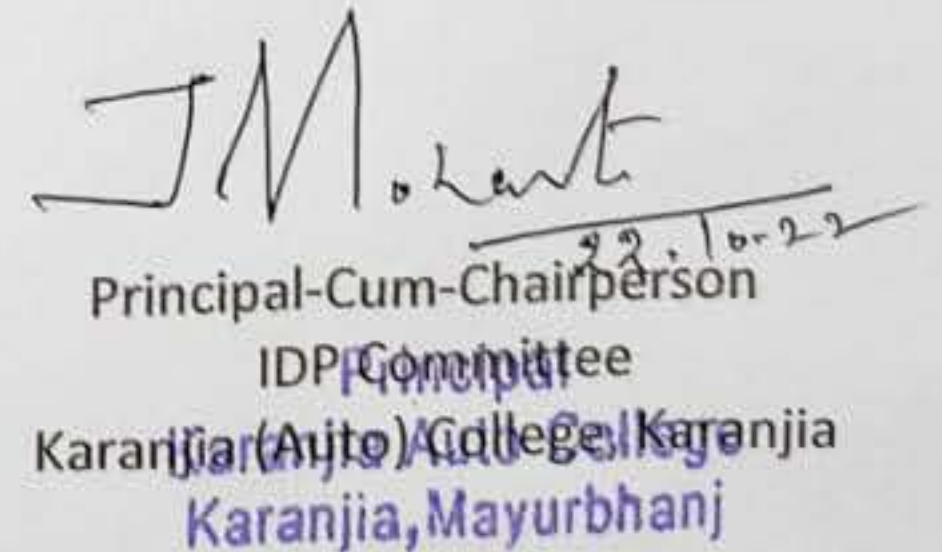 JMohant
22.10-22
Principal-Cum-Chairperson
IDP Committee
Principal
Karanjia (Auto) College, Karanjia
Karanjia Auto College
Karanjia, Mayurbhanj